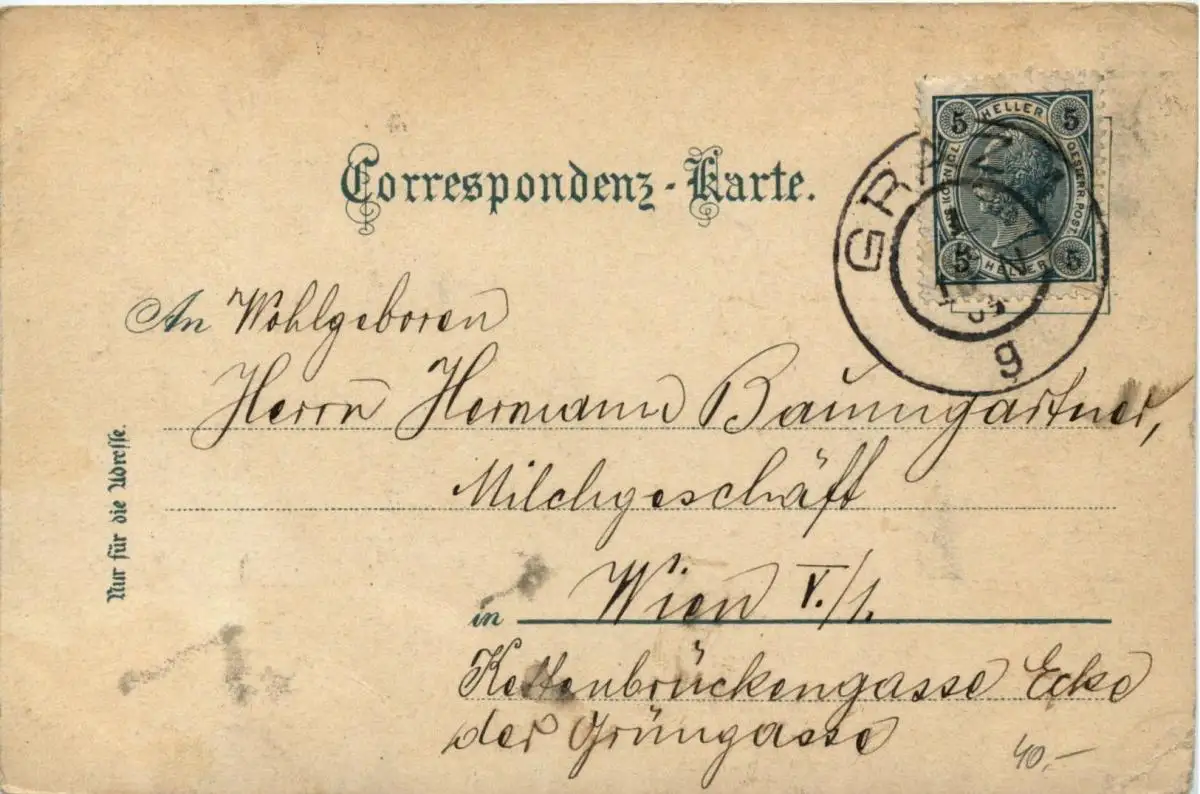 Correspondenz-Karte.
5 HELLER 5
OESTERR. POST
5 HELLER 5
g
An Wohlgeboren
Herrn Hermann Baumgartner,
Milchgeschäft
in Wien V./1.
Kettenbrückengasse Ecke
der Grüngasse
Nur für die Adresse.
40,-